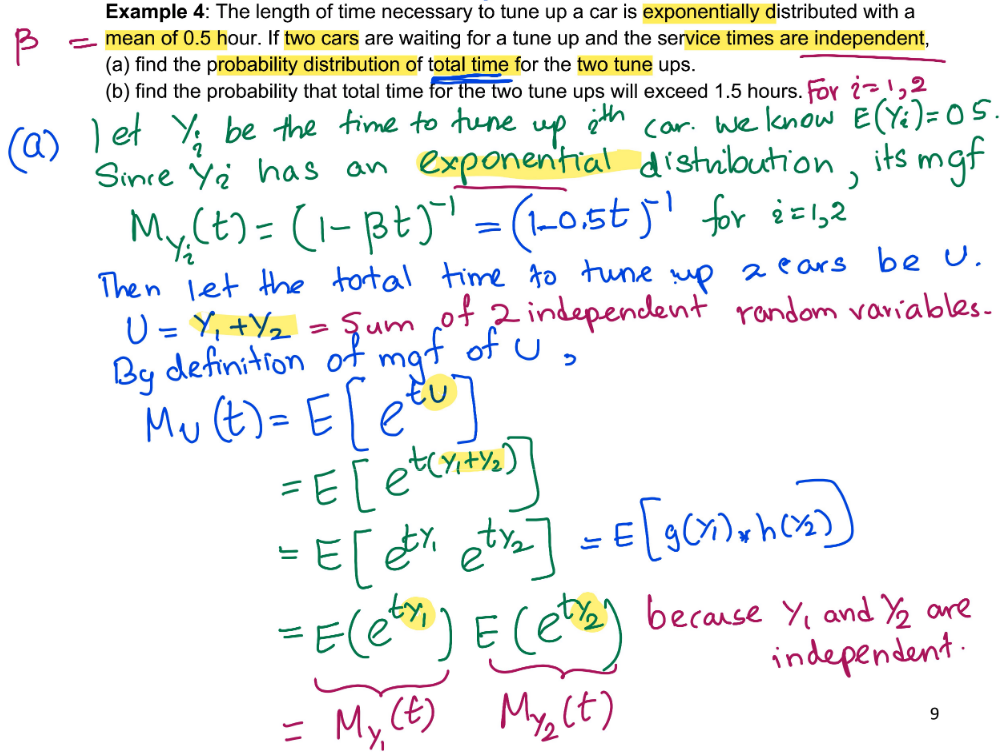 Example 4: The length of time necessary to tune up a car is exponentially distributed with a
β = mean of 0.5 hour. If two cars are waiting for a tune up and the service times are independent,
(a) find the probability distribution of total time for the two tune ups.
(b) find the probability that total time for the two tune ups will exceed 1.5 hours. For i=1,2
(a) let Yᵢ be the time to tune up iᵗʰ car. We know E(Yᵢ)=0.5.
Since Yᵢ has an exponential distribution, its mgf
M_Yᵢ(t) = (1-βt)⁻¹ = (1-0.5t)⁻¹ for i=1,2
Then let the total time to tune up 2 cars be U.
U = Y₁+Y₂ = Sum of 2 independent random variables.
By definition of mgf of U,
M_U(t) = E[e^{tU}]
= E[e^{t(Y₁+Y₂)}]
= E[e^{tY₁} e^{tY₂}] = E[g(Y₁)*h(Y₂)]
= E(e^{tY₁}) E(e^{tY₂}) because Y₁ and Y₂ are
independent.
= M_Y₁(t) M_Y₂(t)
9